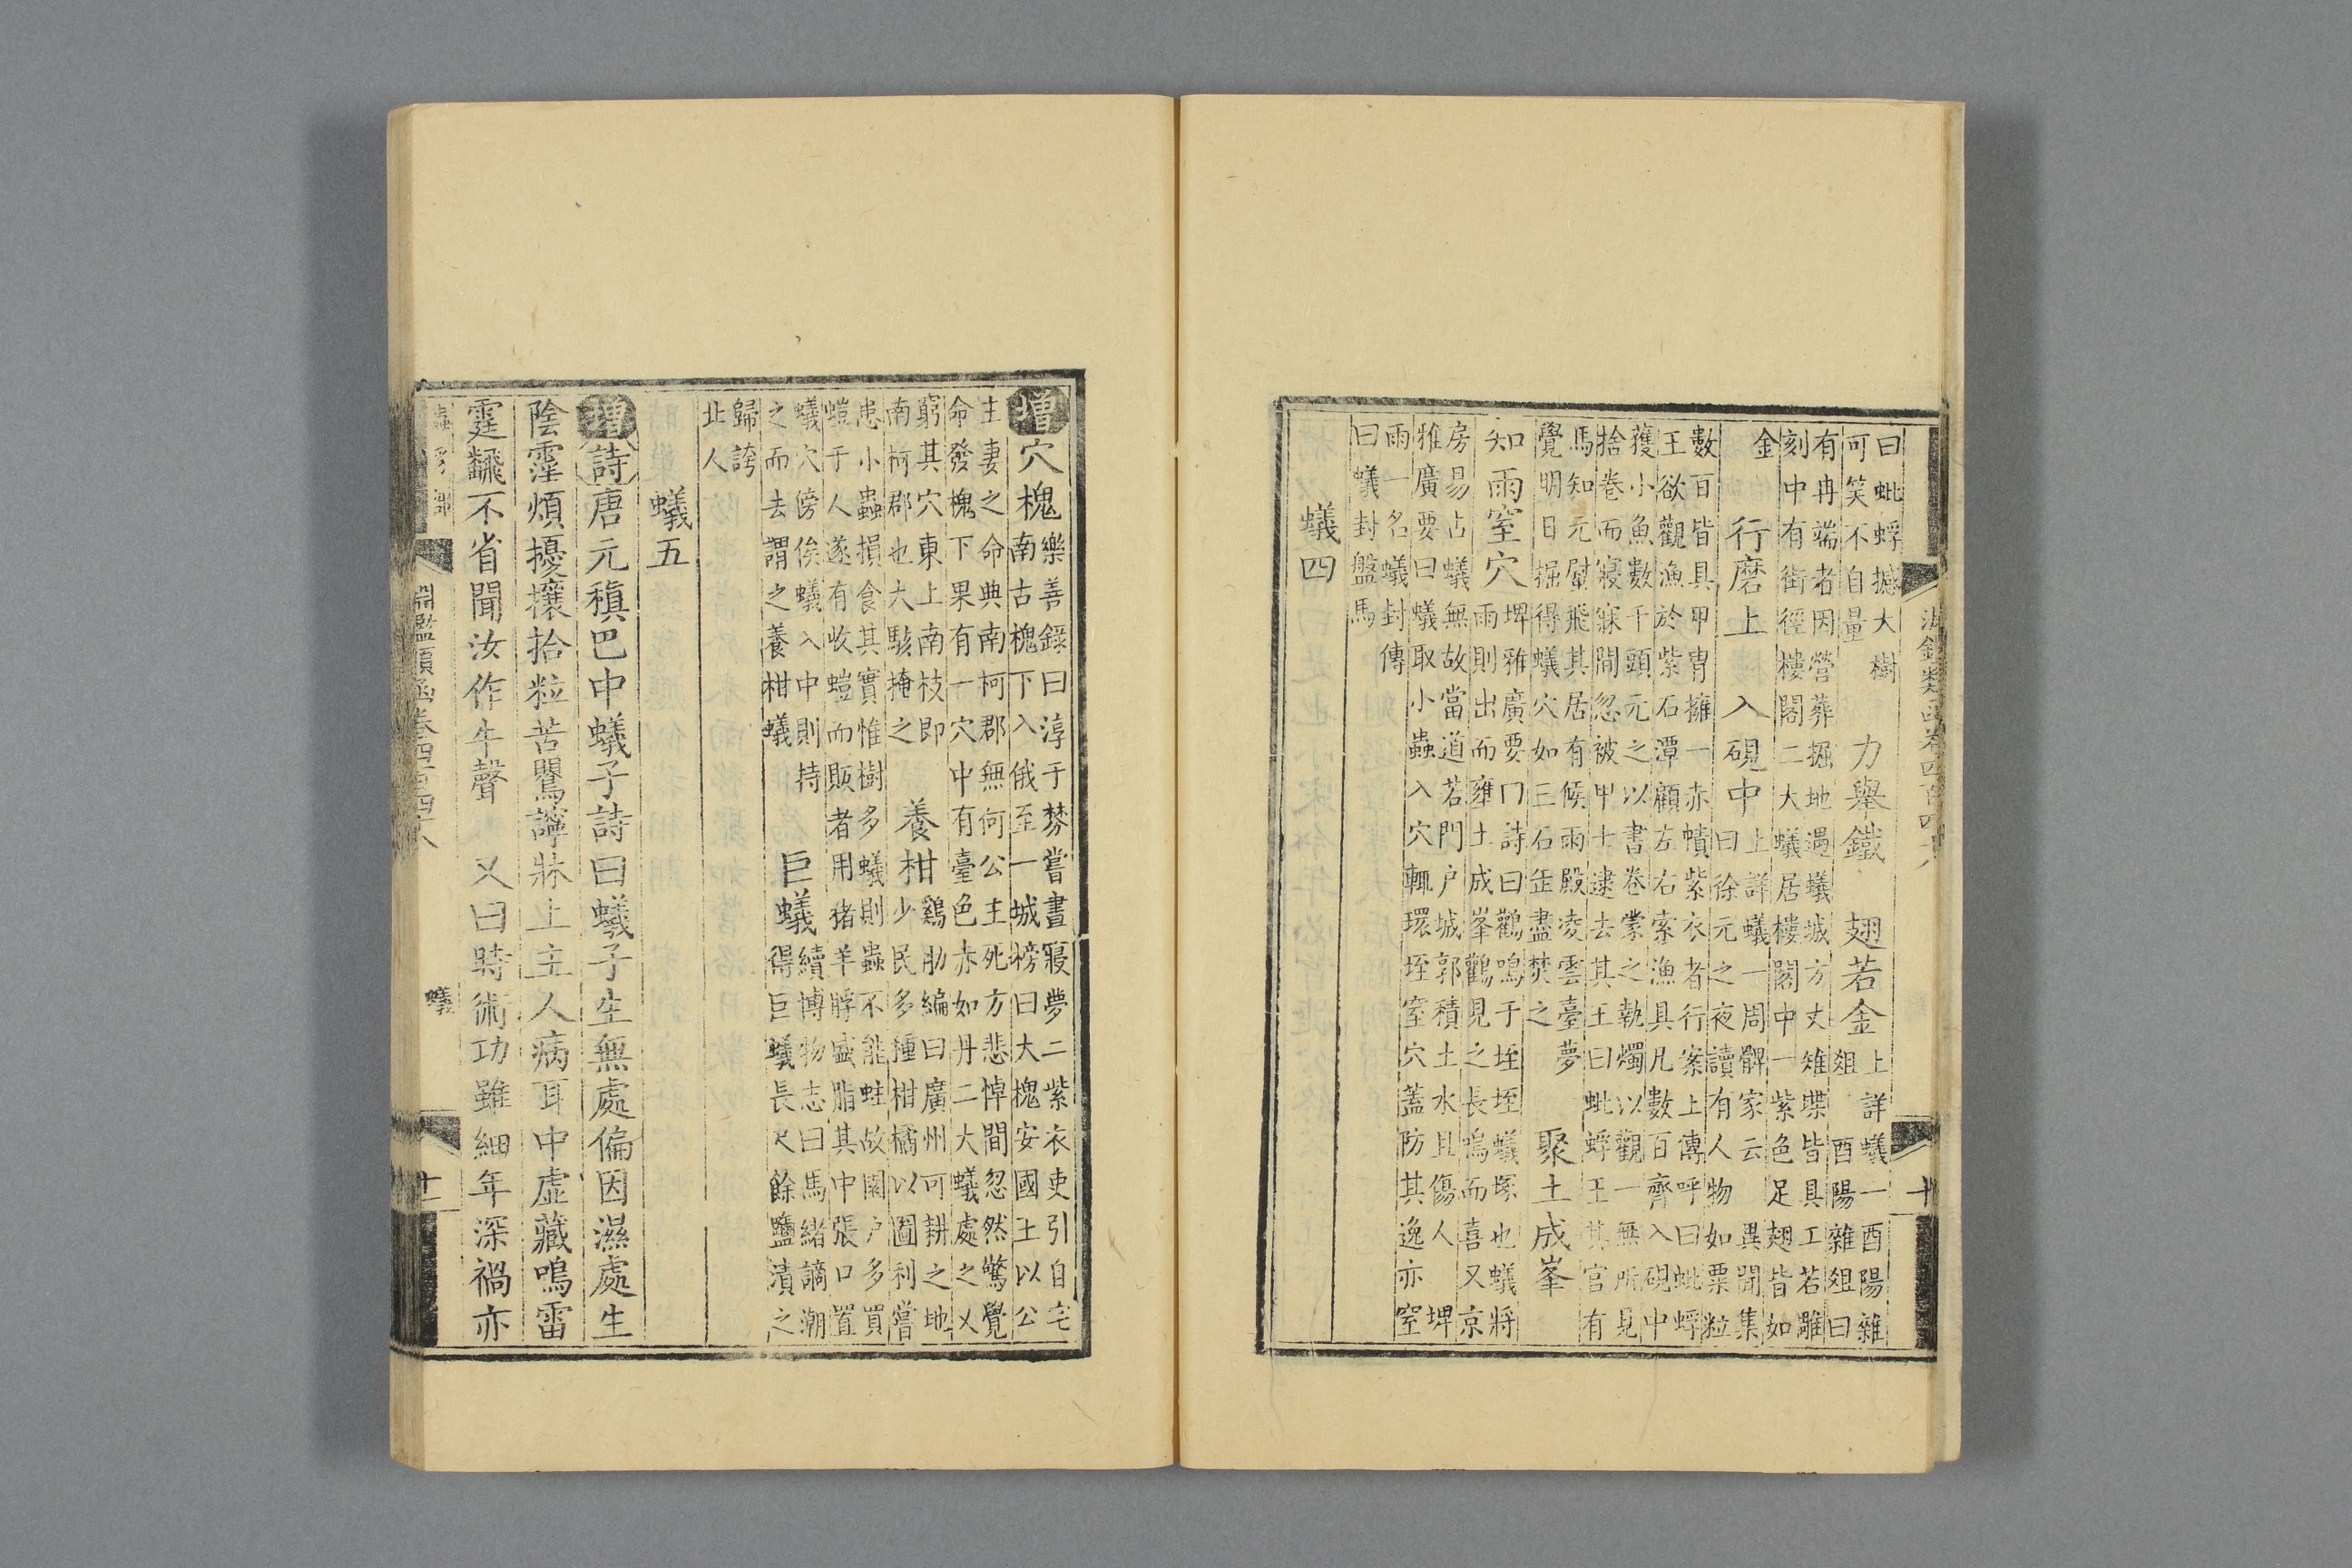 曰蚍蜉撼大樹
可笑不自量
力舉鐵 翅若金
上詳蟻一酉陽雜
俎 酉陽雜俎曰
有冉端者因營葬掘地遇蟻城方丈雉堞皆具工若雕
刻中有街徑樓閣二大蟻居樓閣中一紫色足翅皆如
金
行磨上 入硯中
上詳蟻一周髀家云 異聞集
曰徐元之夜讀有人物如粟粒
數百皆具甲冑擁一赤幘紫衣者行案上傳呼曰蚍蜉
王欲觀漁於紫石潭顧左右索漁具凡數百齊入硯中
獲小魚數千頭元之以書卷蒙之執燭以觀一無所見
捨卷而寢寐間忽被甲士逮去其王曰蚍蜉王其宮有
馬知元慰飛其居有候雨殿凌雲臺夢
覺明日掘得蟻穴如三石缶盡焚之
聚土成峯
知雨窒穴
埤雅廣要門詩曰鸛鳴于垤垤蟻塚也蟻將
雨則出而壅土成峯鸛見之長鳴而喜又京
房易占蟻無故當道若門户城郭積土水且傷人 埤
雅廣要曰蟻取小蟲入穴輒環垤窒穴蓋防其逸亦窒
雨一名蟻封傳
曰蟻封盤馬
蟻四
增穴槐
樂善錄曰淳于棼嘗晝寢夢二紫衣吏引自宅
南古槐下入俄至一城榜曰大槐安國王以公
主妻之命典南柯郡無何公主死方悲悼間忽然驚覺
命發槐下果有一穴中有臺色赤如丹二大蟻處之又
窮其穴東上南枝即
南柯郡也大駭掩之
養柑
雞肋編曰廣州可耕之地
少民多種柑橘以圖利嘗
患小蟲損食其實惟樹多蟻則蟲不能蛀故園户多買
螘于人遂有收螘而販者用猪羊脬盛脂其中張口置
蟻穴傍俟蟻入中則持
之而去謂之養柑蟻
巨蟻
續博物志曰馬緒謫潮
得巨蟻長尺餘鹽漬之
歸誇
北人
蟻五
增詩唐元稹巴中蟻子詩曰蟻子生無處偏因濕處生
陰霪煩擾攘拾粒苦嚶嚀牀上主人病耳中虛藏鳴雷
霆翻不省聞汝作牛聲 又曰時術功雖細年深禍亦
蟲豸部 淵鑑類函卷四百四十八 蟻 十一